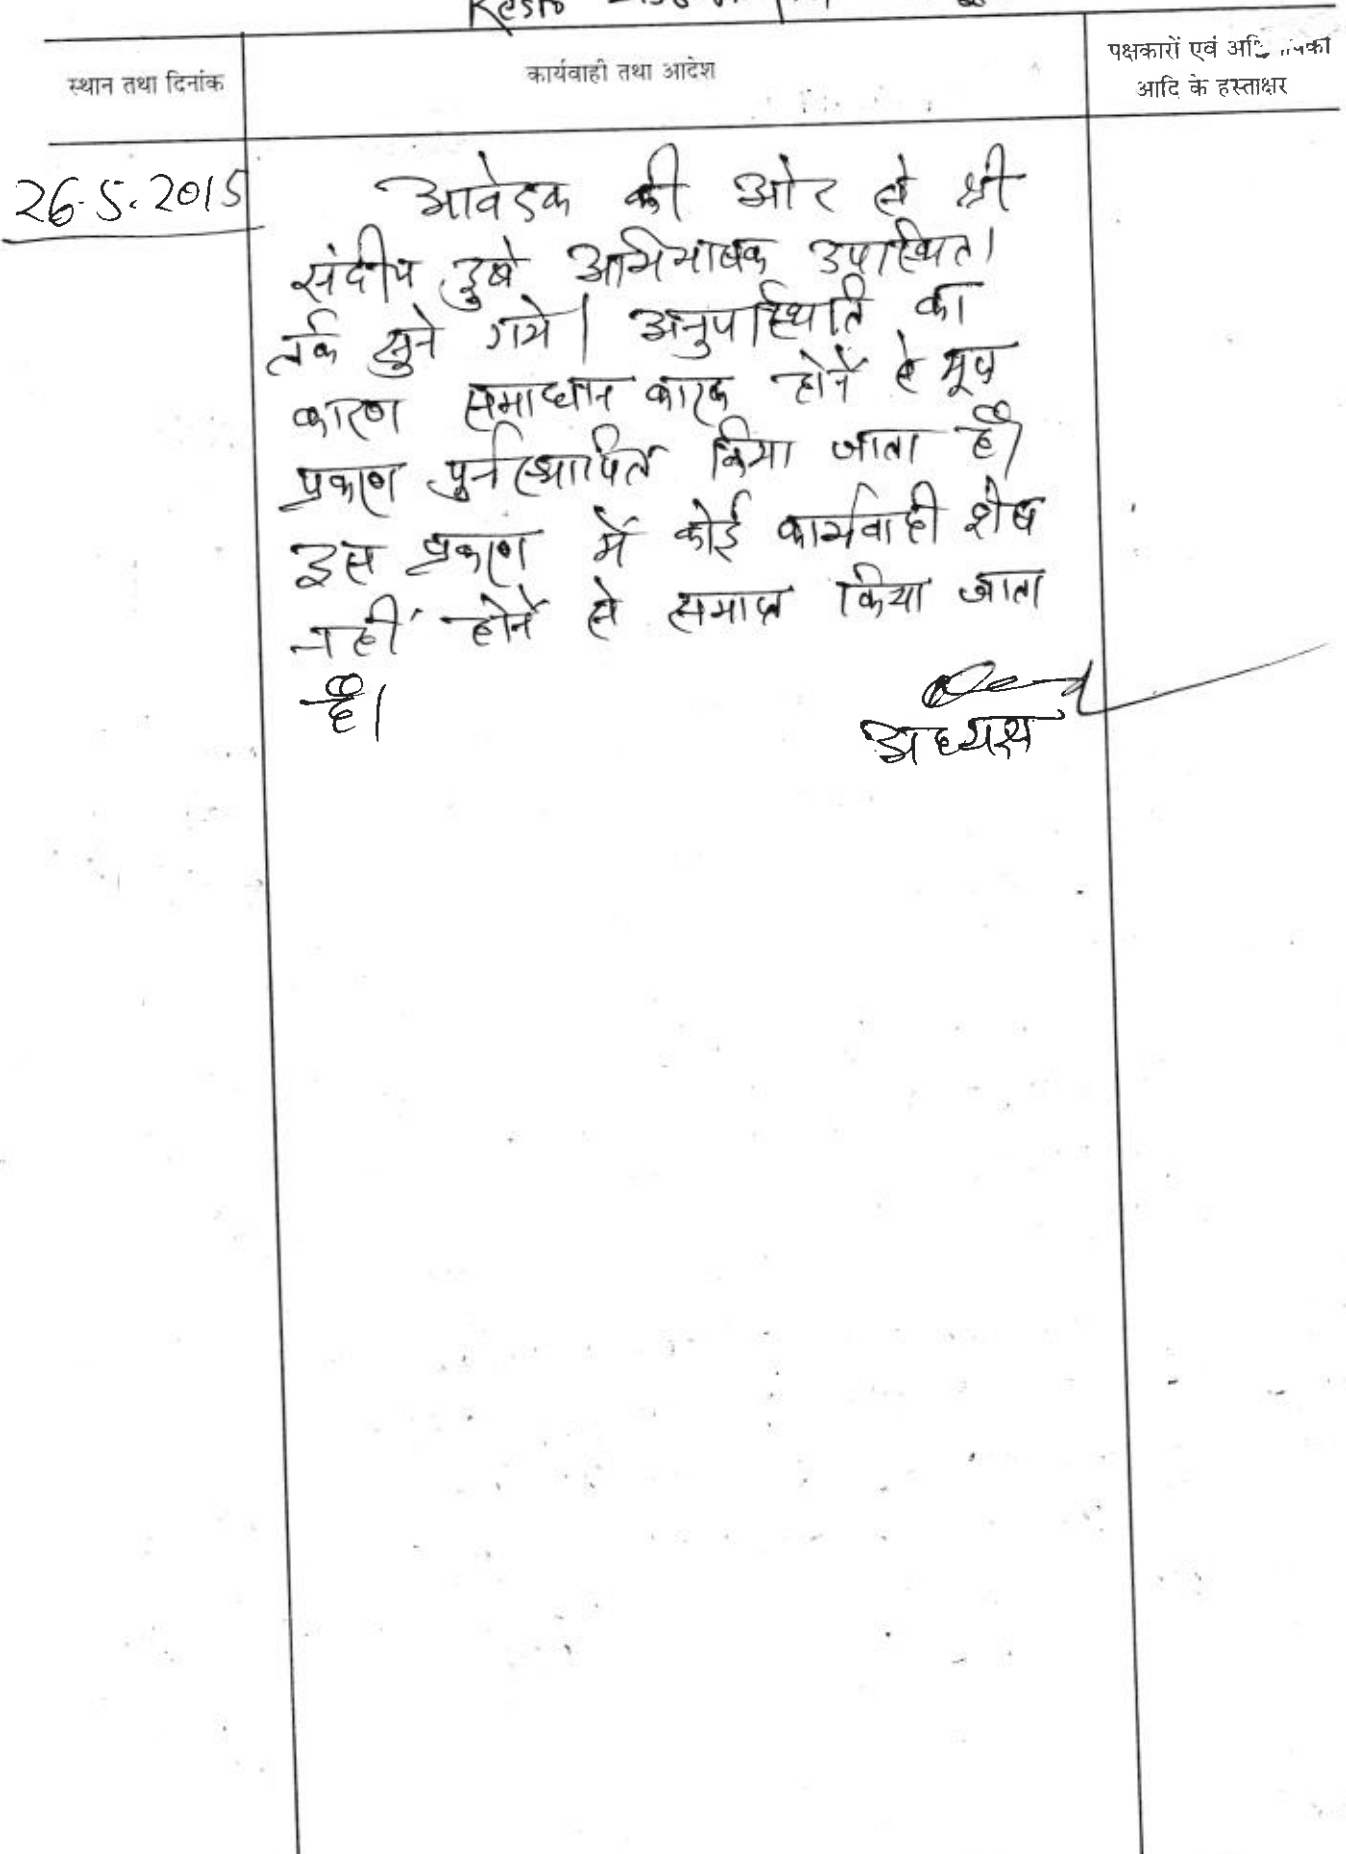 Resto
स्थान तथा दिनांक
कार्यवाही तथा आदेश
पक्षकारों एवं
आदि के हस्ताक्षर
26.5.2015
आवेदक की ओर से श्री
संदीप दुबे अभिभाषक उपस्थित।
तर्क सुने गये। अनुपस्थिति का
कारण समाधान कारक होने से मूल
प्रकरण पुर्नस्थापित किया जाता है।
इस प्रकरण में कोई कार्यवाही शेष
नहीं होने से समाप्त किया जाता
है।
अध्यक्ष